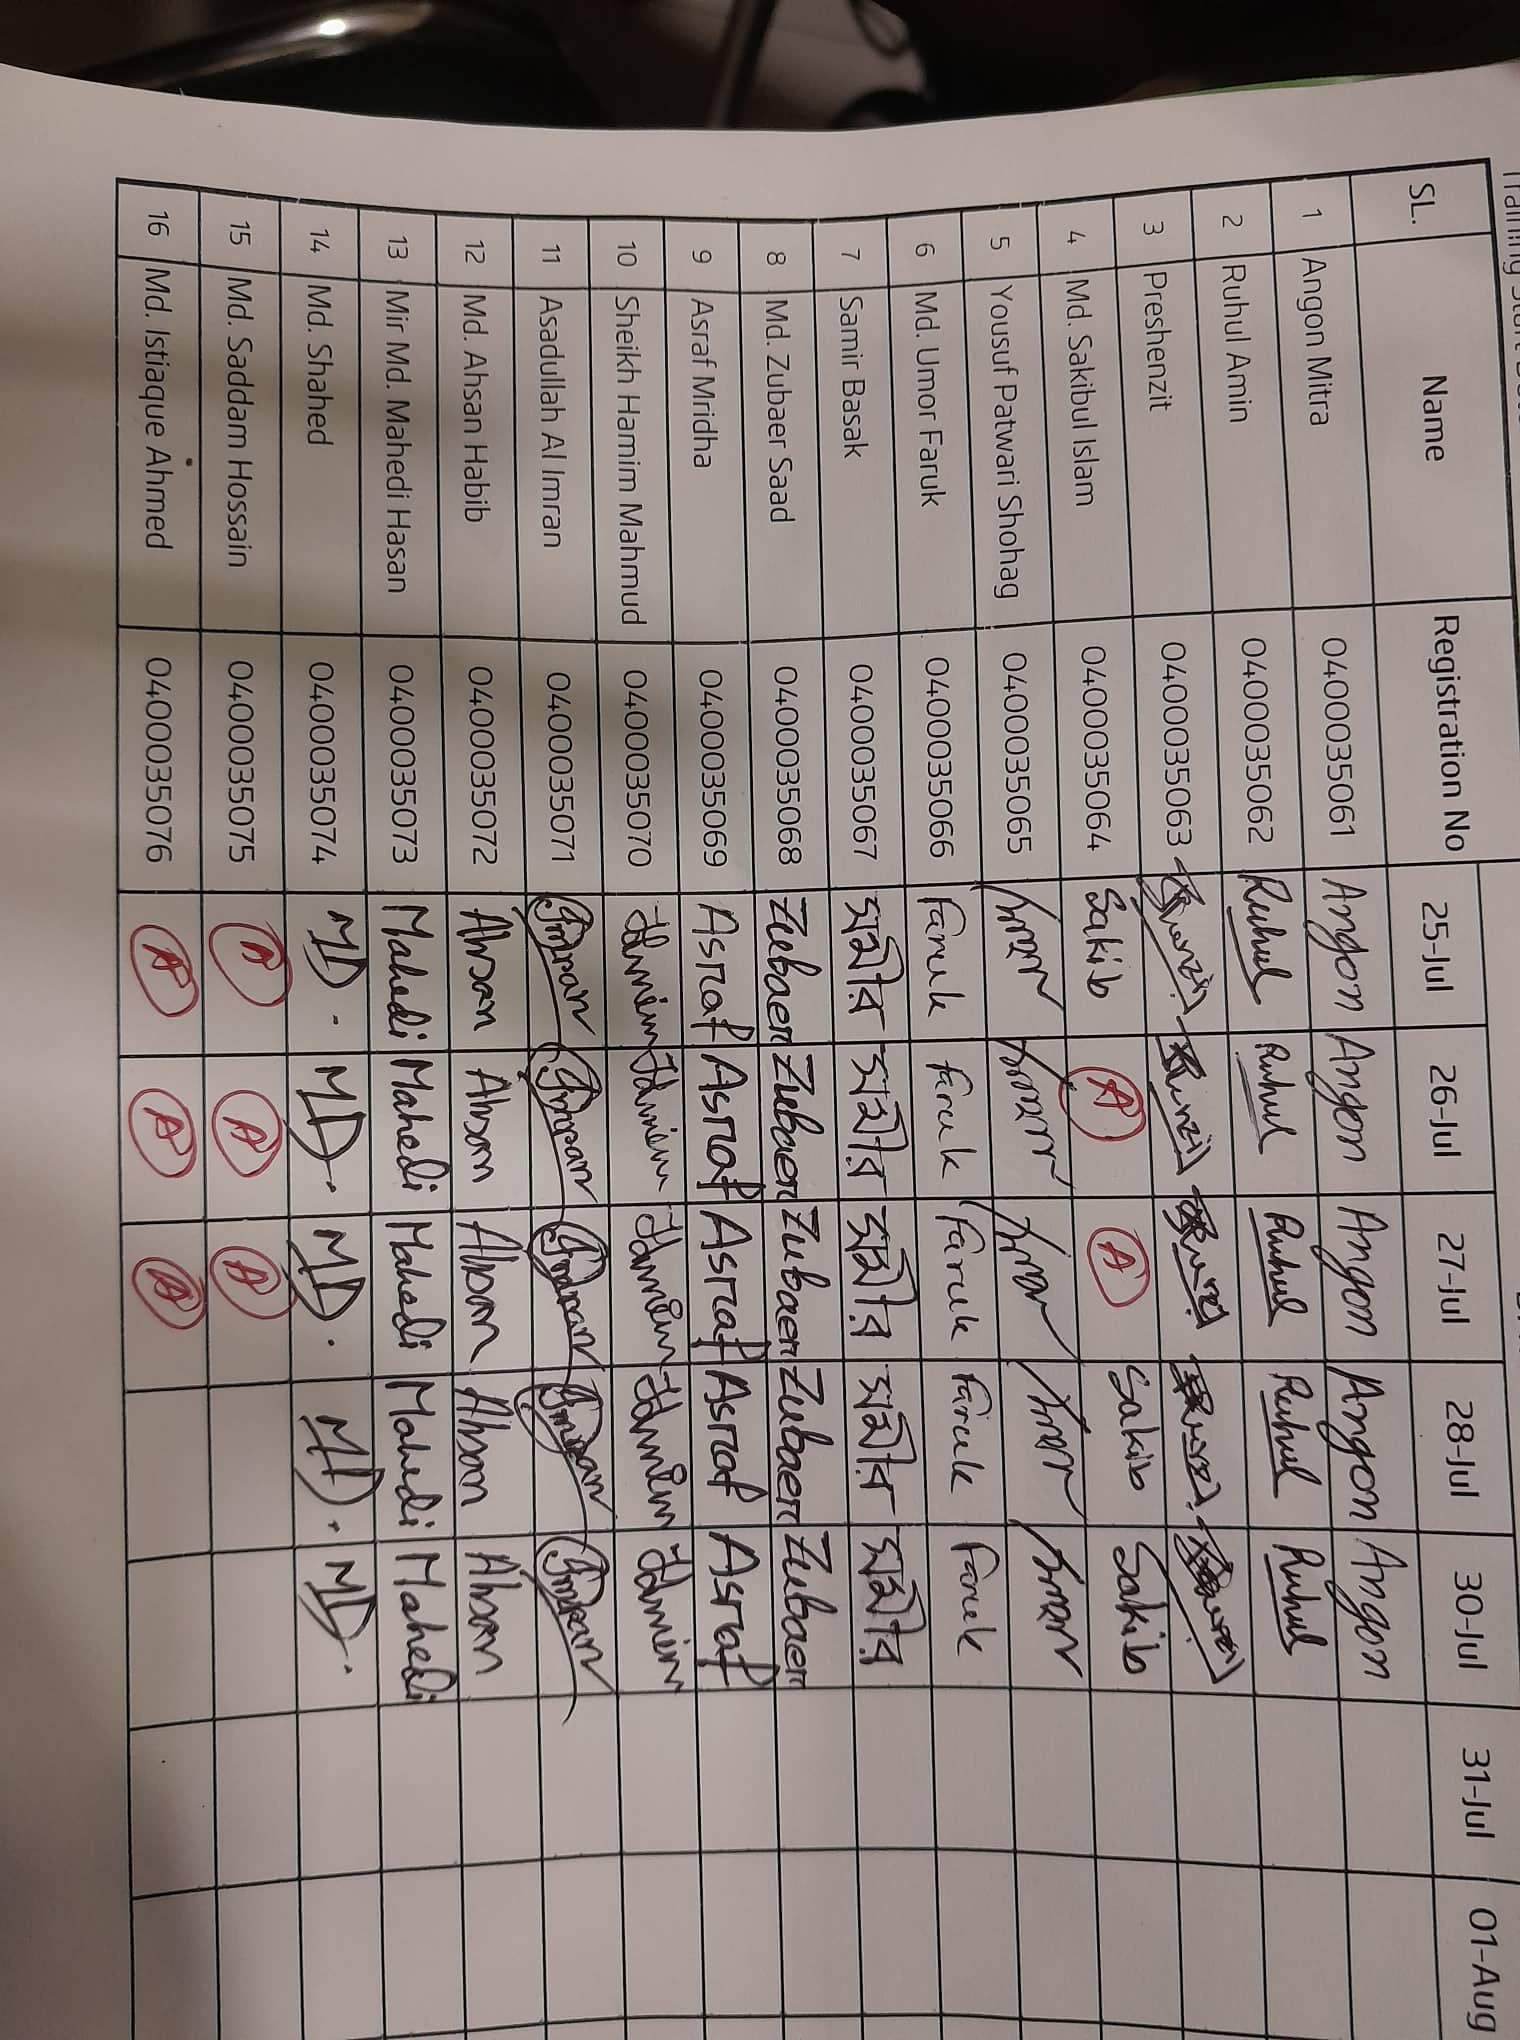 SL. Name Registration No 25-Jul 26-Jul 27-Jul 28-Jul 30-Jul 31-Jul 01-Aug
1 Angon Mitra 0400035061 Angon Angon Angon Angon Angon
2 Ruhul Amin 0400035062 Ruhul Ruhul Ruhul Ruhul Ruhul
3 Preshenzit 0400035063
4 Md. Sakibul Islam 0400035064 Sakib A A Sakib Sakib
5 Yousuf Patwari Shohag 0400035065
6 Md. Umor Faruk 0400035066 Faruk Faruk Faruk Faruk Faruk
7 Samir Basak 0400035067 সমীর সমীর সমীর সমীর সমীর
8 Md. Zubaer Saad 0400035068 Zubaer Zubaer Zubaer Zubaer Zubaer
9 Asraf Mridha 0400035069 Asraf Asraf Asraf Asraf Asraf
10 Sheikh Hamim Mahmud 0400035070 Hamim Hamim Hamim Hamim Hamim
11 Asadullah Al Imran 0400035071 Imran Imran Imran Imran Imran
12 Md. Ahsan Habib 0400035072 Ahsan Ahsan Ahsan Ahsan Ahsan
13 Mir Md. Mahedi Hasan 0400035073 Mahedi Mahedi Mahedi Mahedi Mahedi
14 Md. Shahed 0400035074 MD. MD. MD. MD. MD.
15 Md. Saddam Hossain 0400035075 A A A
16 Md. Istiaque Ahmed 0400035076 A A A